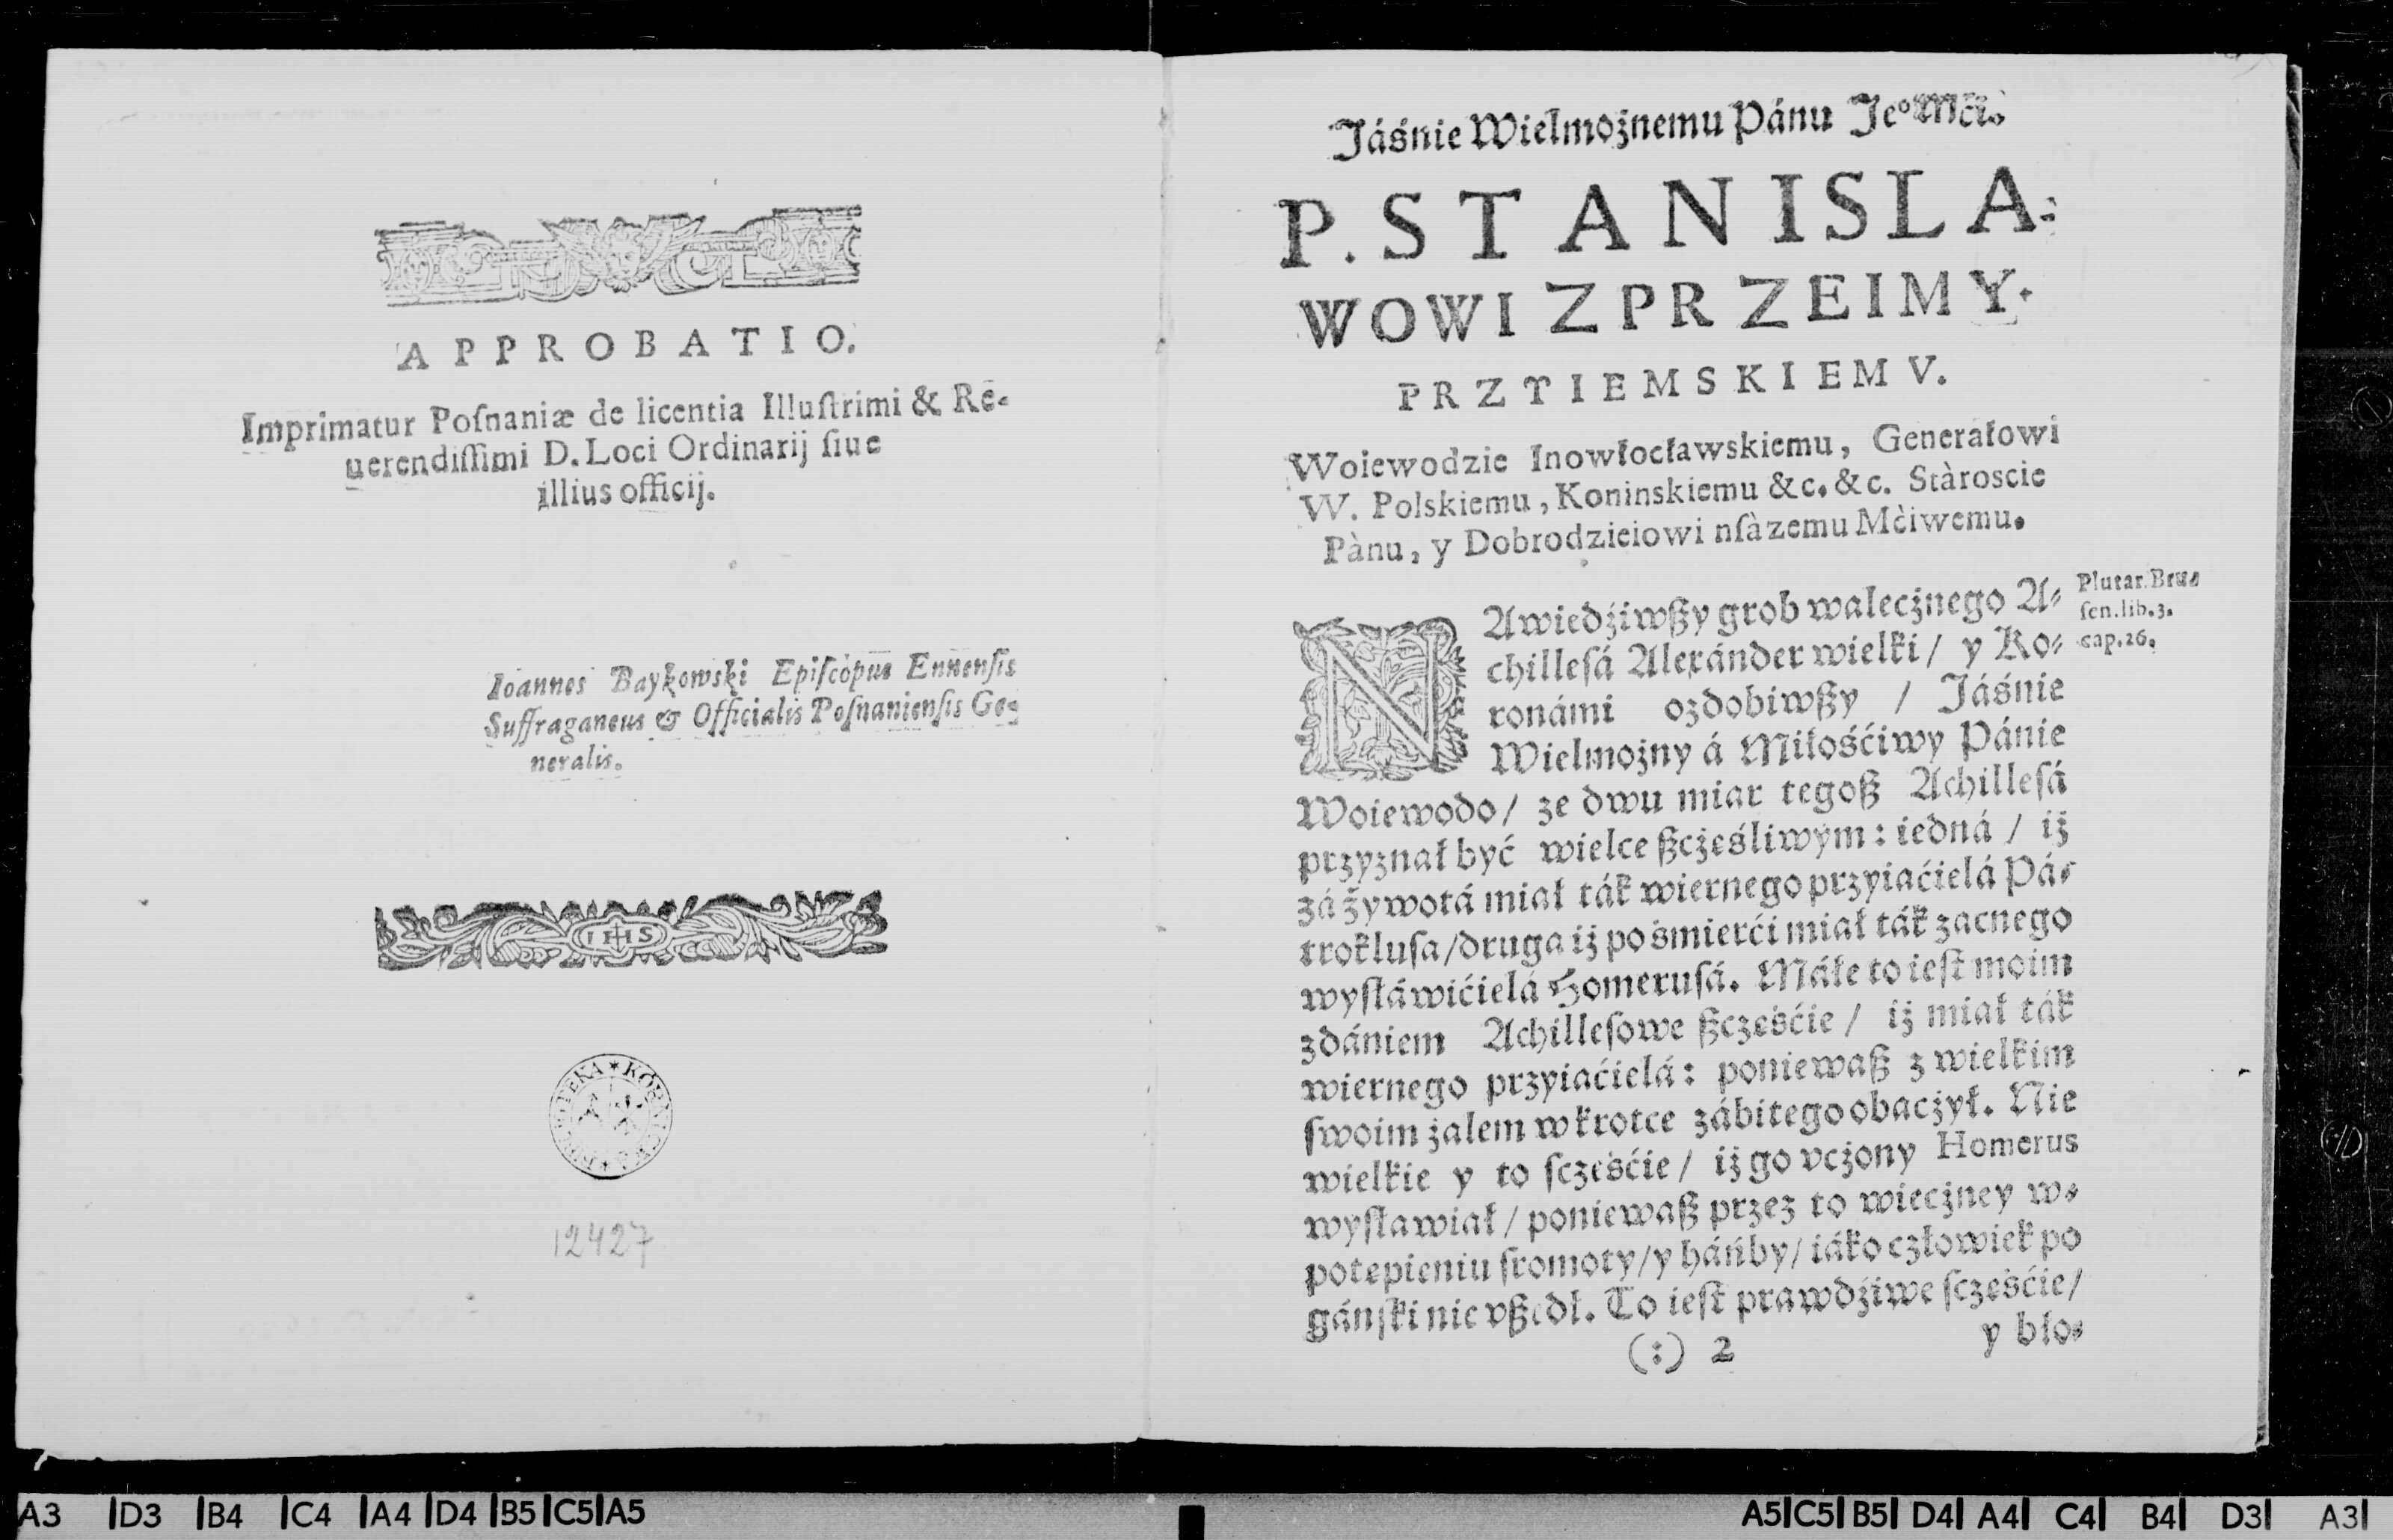 APPROBATIO.
Imprimatur Poſnaniæ de licentia Illuſtrimi & Re-
uerendiſſimi D. Loci Ordinarij ſiue
illius officij.
Ioannes Baykowski Epiſcopus Ennenſis
Suffraganeus & Officialis Poſnanienſis Ge-
neralis.
IHS
12427
Jáśnie Wielmożnemu Pánu Jeº Mći.
P. STANISLA-
WOWI Z PRZEIMY.
PRZTIEMSKIEMV.
Woiewodzie Inowłocławskiemu, Generałowi
W. Polskiemu, Koninskiemu &c. &c. Stàroscie
Pànu, y Dobrodzieiowi nſàzemu Mćiwemu.
NAwiedźiwßy grob walecżnego A-
chilleſá Alexánder wielki / y Ko-
ronámi ozdobiwßy / Jáśnie
Wielmożny á Miłośćiwy Pánie
Woiewodo / ze dwu miar tegoß Achilleſá
przyznał być wielce ßcżeśliwym: iedná / iż
zá żywotá miał ták wiernego przyiaćielá Pá-
trokluſa / druga iż po śmierći miał ták zacnego
wyſłáwićielá Homeruſá. Máłe to ieſt moim
zdániem Achilleſowe ßcześćie / iż miał ták
wiernego przyiaćielá: poniewaß z wielkim
ſwoim żalem w krotce zábitego obacżył. Nie
wielkie y to ſcześćie / iż go vcżony Homerus
wyſławiał / poniewaß przez to wiecżney w-
potępieniu ſromoty / y háńby / iáko człowiek po
gánſki nie vßedł. To ieſt prawdźiwe ſcześćie /
(:) 2
y bło-
Plutar. Bru-
ſen. lib. 3.
cap. 26.
A3 D3 B4 C4 A4 D4 B5 C5 A5
A5 C5 B5 D4 A4 C4 B4 D3 A3